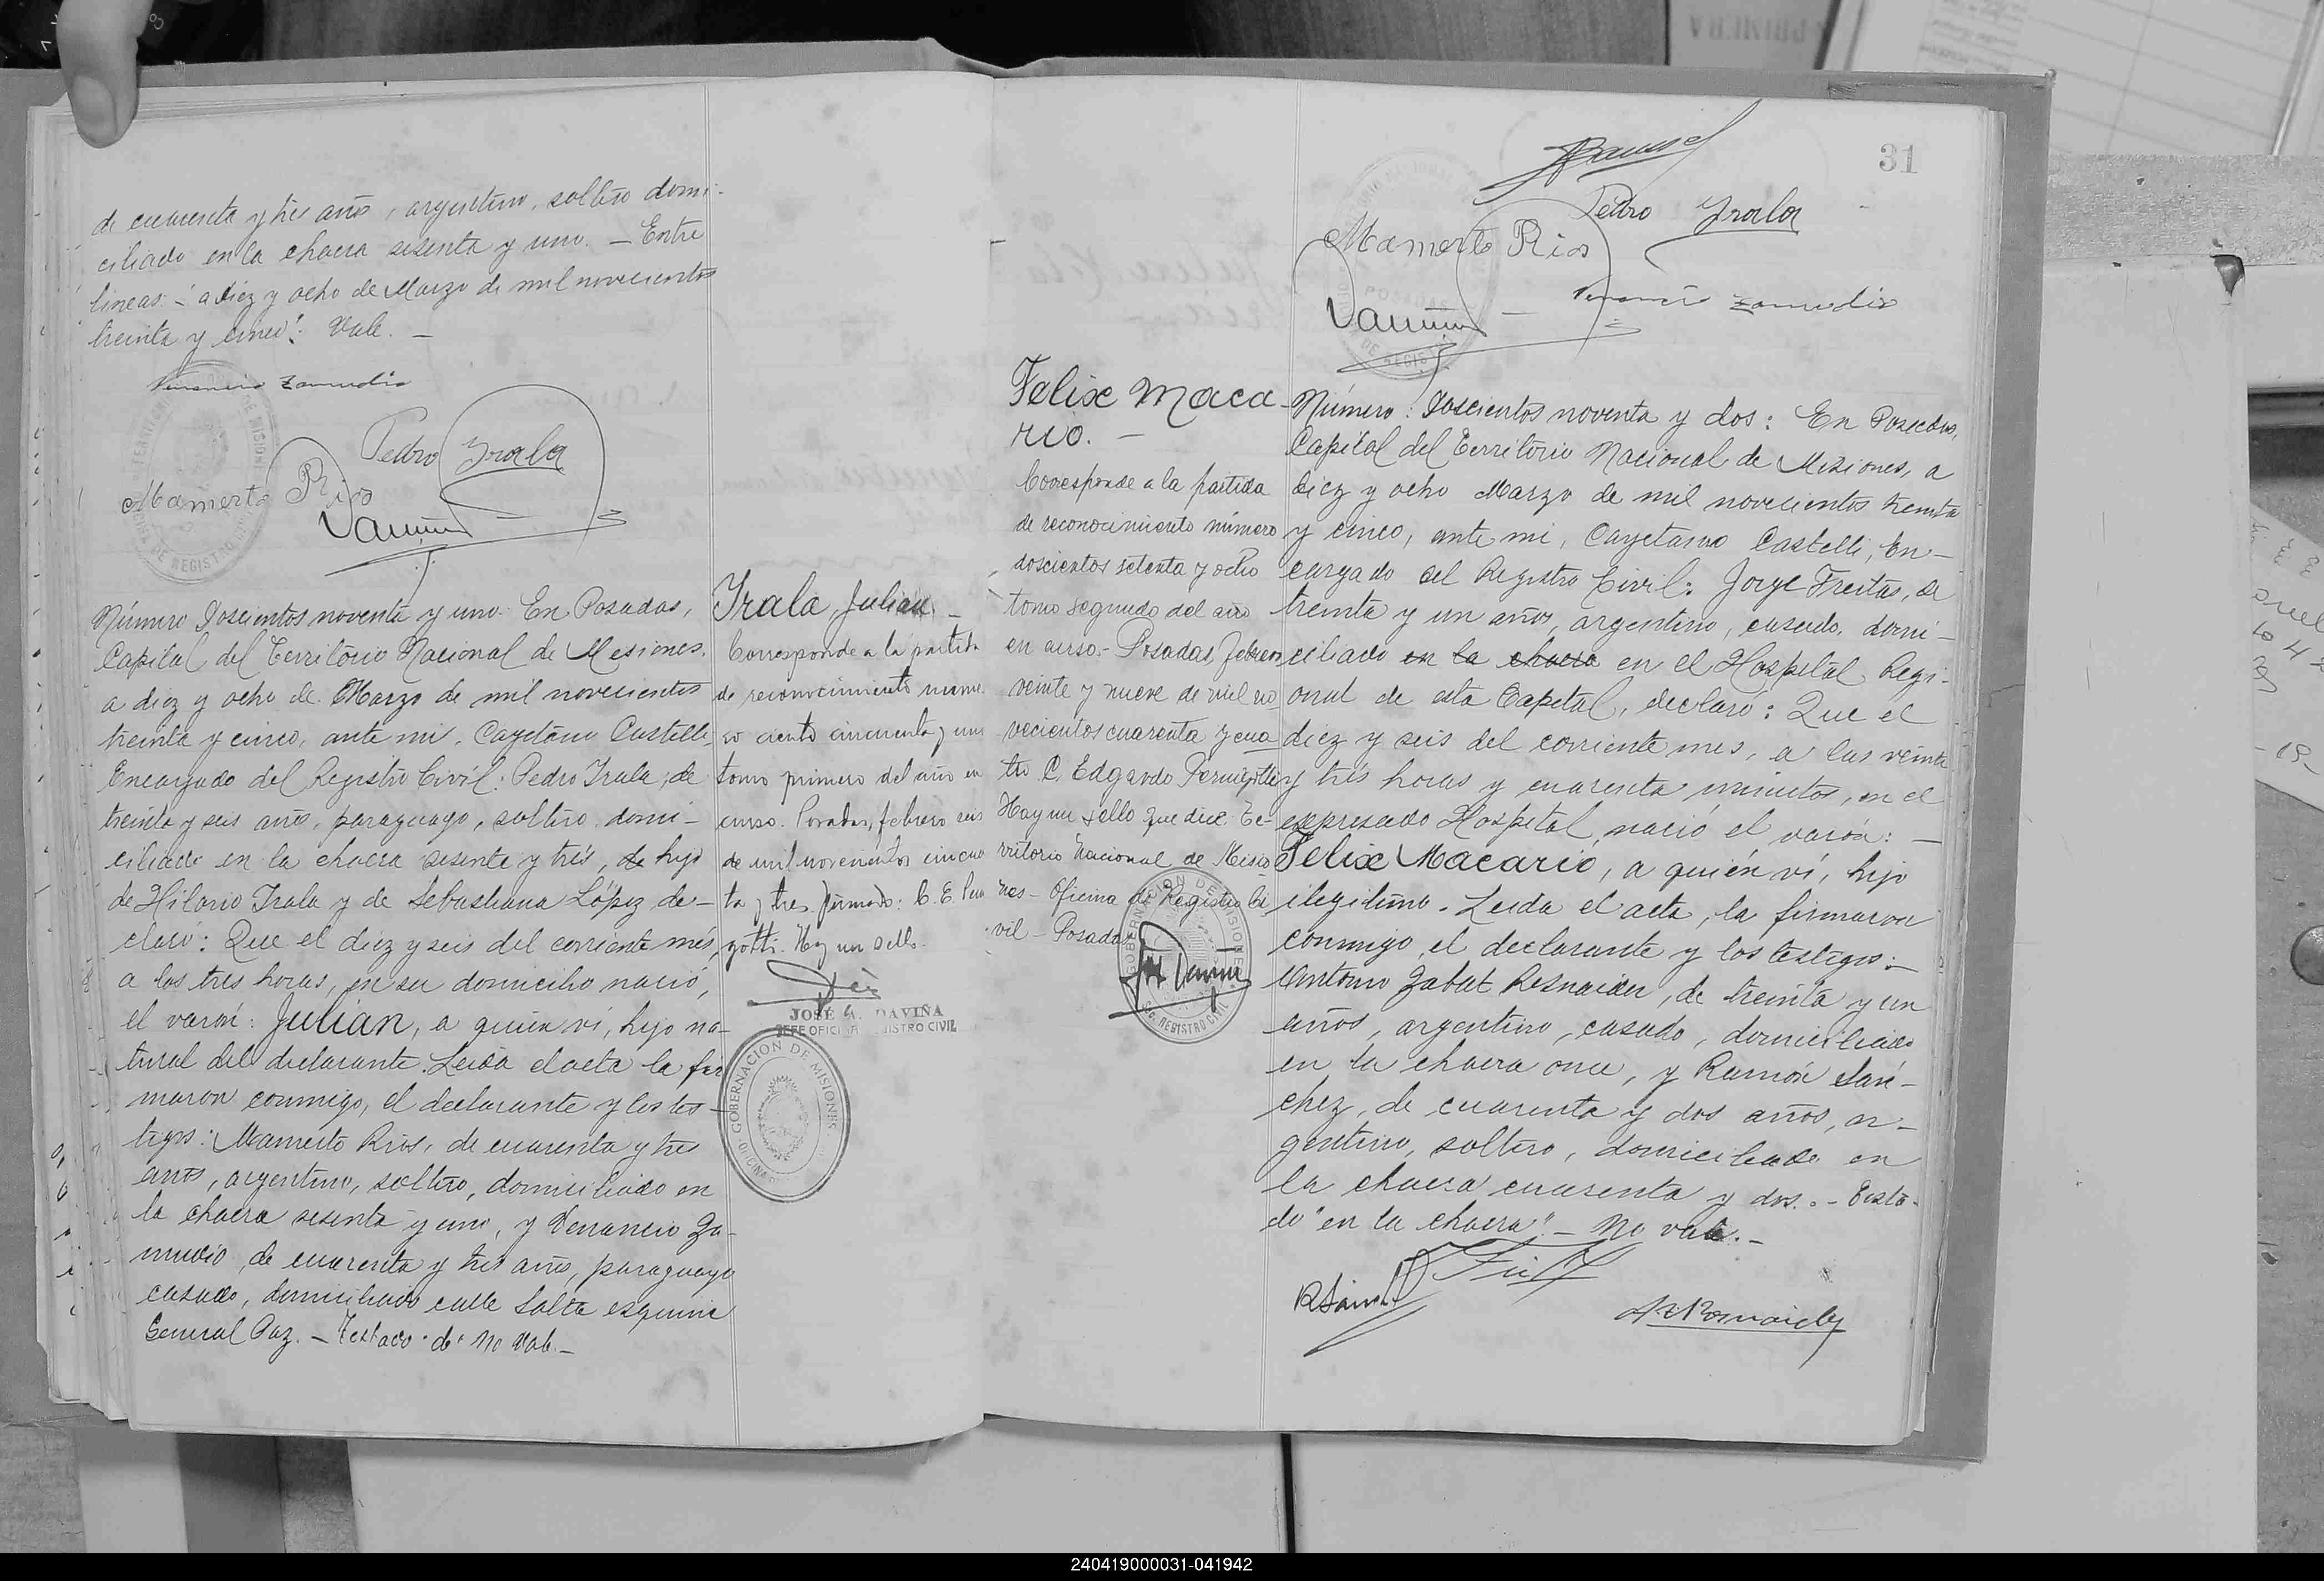 de cuarenta y tres años, argentino, soltero domi-
ciliado en la chacra sesenta y uno. — Entre
lineas: "a diez y ocho de Marzo de mil novecientos
treinta y cinco": Vale. —
Venancio Zamudio
Pedro Yrala
Mamerto Rios
Número Doscientos noventa y uno. En Posadas,
Capital del Territorio Nacional de Misiones,
a diez y ocho de Marzo de mil novecientos
treinta y cinco, ante mi, Cayetano Castelli,
Encargado del Registro Civil: Pedro Irala, de
treinta y seis años, paraguayo, soltero, domi-
ciliado en la chacra sesenta y trés, de hijo
de Hilario Irala y de Sebastiana López de-
claró: Que el diez y seis del corriente més,
a las tres horas, en su domicilio nació,
el varón: Julián, a quién vi, hijo na-
tural del declarante. Leida el acta la fir
maron conmigo, el declarante y los tes-
tigos: Mamerto Rios, de cuarenta y tres
años, argentino, soltero, domiciliado en
la chacra sesenta y uno, y Venancio Za-
mudio, de cuarenta y tres años, paraguayo
casado, domiciliado calle Salta esquina
General Paz. — Testado "de" No Vale. —
Irala, Julian. —
Corresponde a la partida
de reconocimiento núme-
ro ciento cincuenta y uno
tomo primero del año en
curso. Posadas, febrero seis
de mil novecientos cincuen
ta y tres. firmado: C. E. Peru
gotti. Hay un sello.
JOSÉ A. DAVIÑA
JEFE OFICINA REGISTRO CIVIL
GOBERNACION DE MISIONES
OFICINA
31
Pedro Yrala
Mamerto Rios
Venancio Zamudio
Felix Maca
rio. —
Corresponde a la partida
de reconocimiento número
doscientos setenta y ocho
tomo segundo del año
en curso. - Posadas, febrero
veinte y nueve de mil no
vecientos cuarenta y cua
tro C. Edgardo Perugotti
Hay un sello que dice: Te-
rritorio Nacional de Misio
nes - Oficina de Registro Ci
vil - Posadas
GOBERNACION DE MISIONES
REGISTRO CIVIL
Número: Doscientos noventa y dos: En Posadas,
Capital del Territorio Nacional de Misiones, a
diez y ocho Marzo de mil novecientos treinta
y cinco, ante mi, Cayetano Castelli, En-
cargado del Registro Civil: Jorge Freitas, de
treinta y un años, argentino, casado, domi-
ciliado en la chacra en el Hospital Regi-
onal de esta Capital, declaró: Que el
diez y seis del corriente mes, a las veinte
y trés horas y cuarenta minutos, en el
expresado Hospital nació el varón: —
Felix Macario, a quién ví, hijo
ilegitimo. Leida el acta, la firmaron
conmigo, el declarante y los testigos: —
Antonio Zabat Resnaider, de treinta y un
años, argentino, casado, domiciliado
en la chacra once, y Ramón Sán-
chez, de cuarenta y dos años, ar-
gentino, soltero, domiciliado en
la chacra cuarenta y dos. - Testa-
do "en la chacra" — No vale. —
240419000031-041942